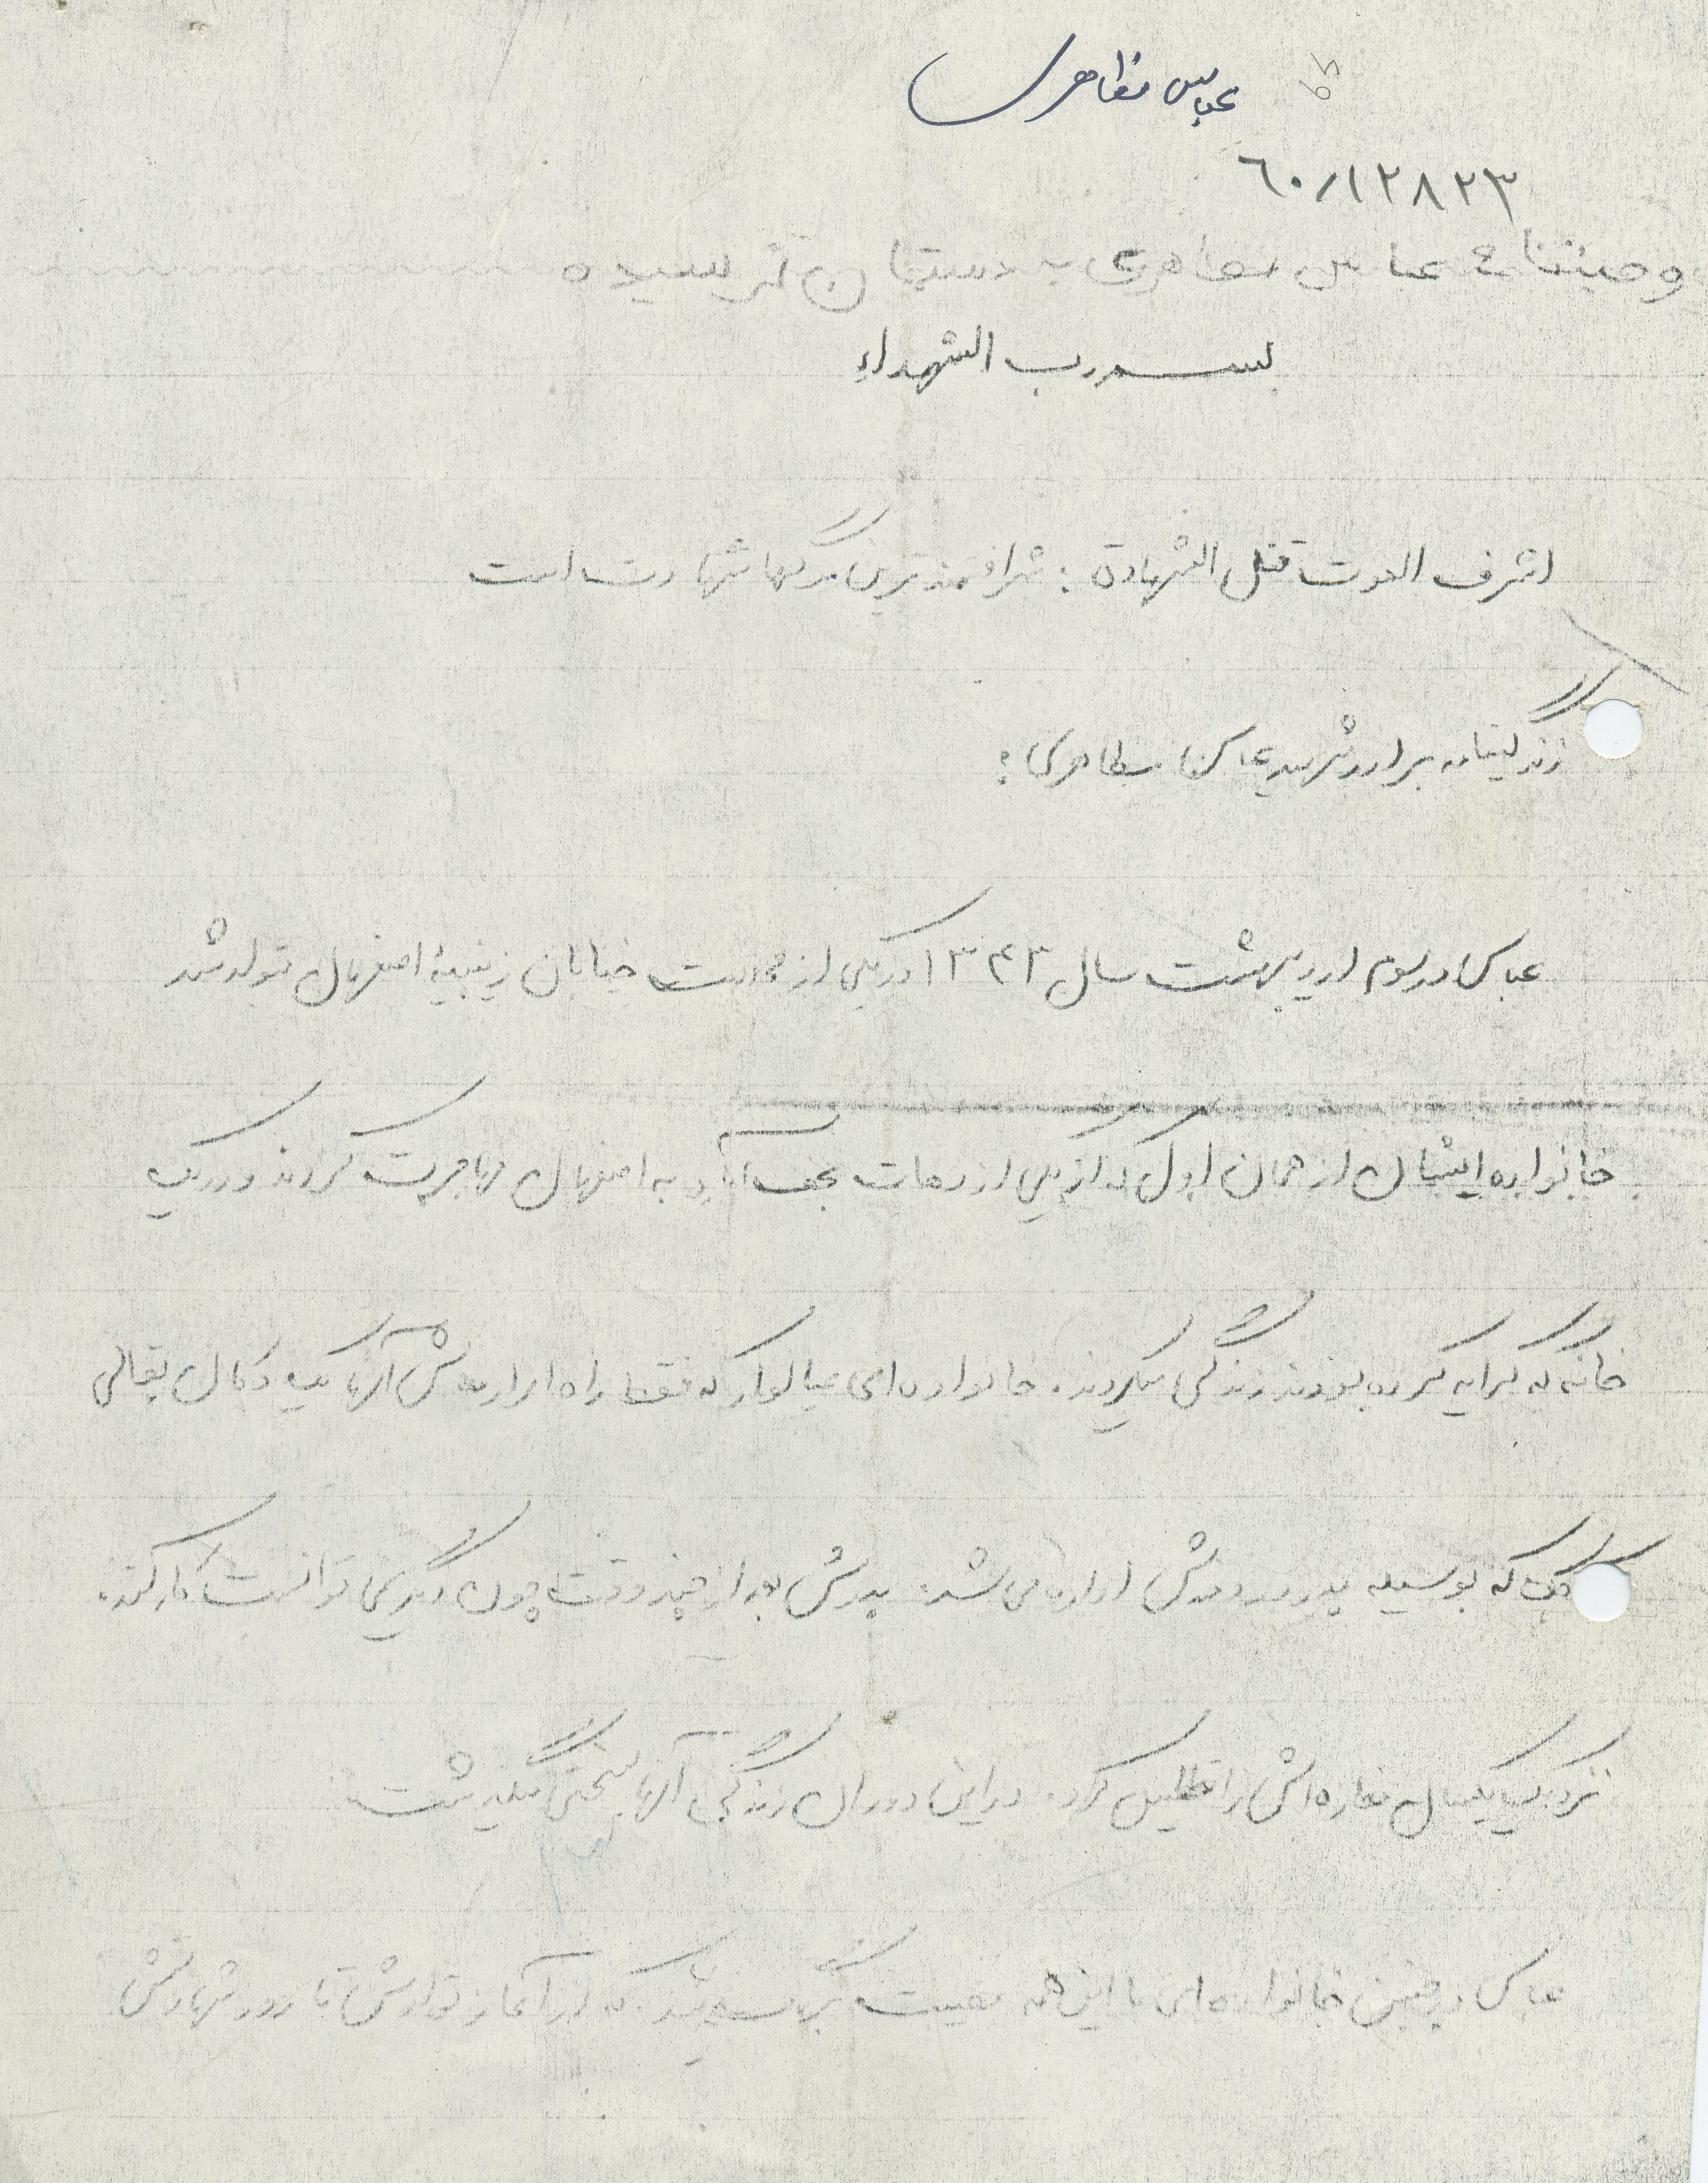 عباس مظاهری
۶۵
۶۰/۱۲۸۲۳
وصیتنامه عباس مظاهری به دستمان نرسیده
بسم رب الشهداء
اشرف الموت قتل الشهادة : شرافتمندترین مرگها شهادت است
زندگینامه برادر شهید عباس مظاهری :
عباس در سوم اردیبهشت سال ۱۳۴۳ در یکی از محلات خیابان زینبیهٔ اصفهان متولد شد
خانواده ایشان از همان اول که از یکی از دهات نجف آباد به اصفهان مهاجرت کردند و در یک
خانه که کرایه کرده بودند زندگی میکردند. خانواده ای عیالوار که فقط راه امرار معاش آنها یک دکان بقالی
که بوسیله پدر و مادرش اداره می شد. پدرش بعد از چند وقت چون دیگر نمی توانست کار کند.
نزدیک یکسال مغازه اش را تعطیل کرد. در این دوران زندگی آنها بسختی میگذشت
عباس در چنین خانواده ای با این همه مصیبت بزرگ شد که از آغاز تولدش تا روز شهادتش